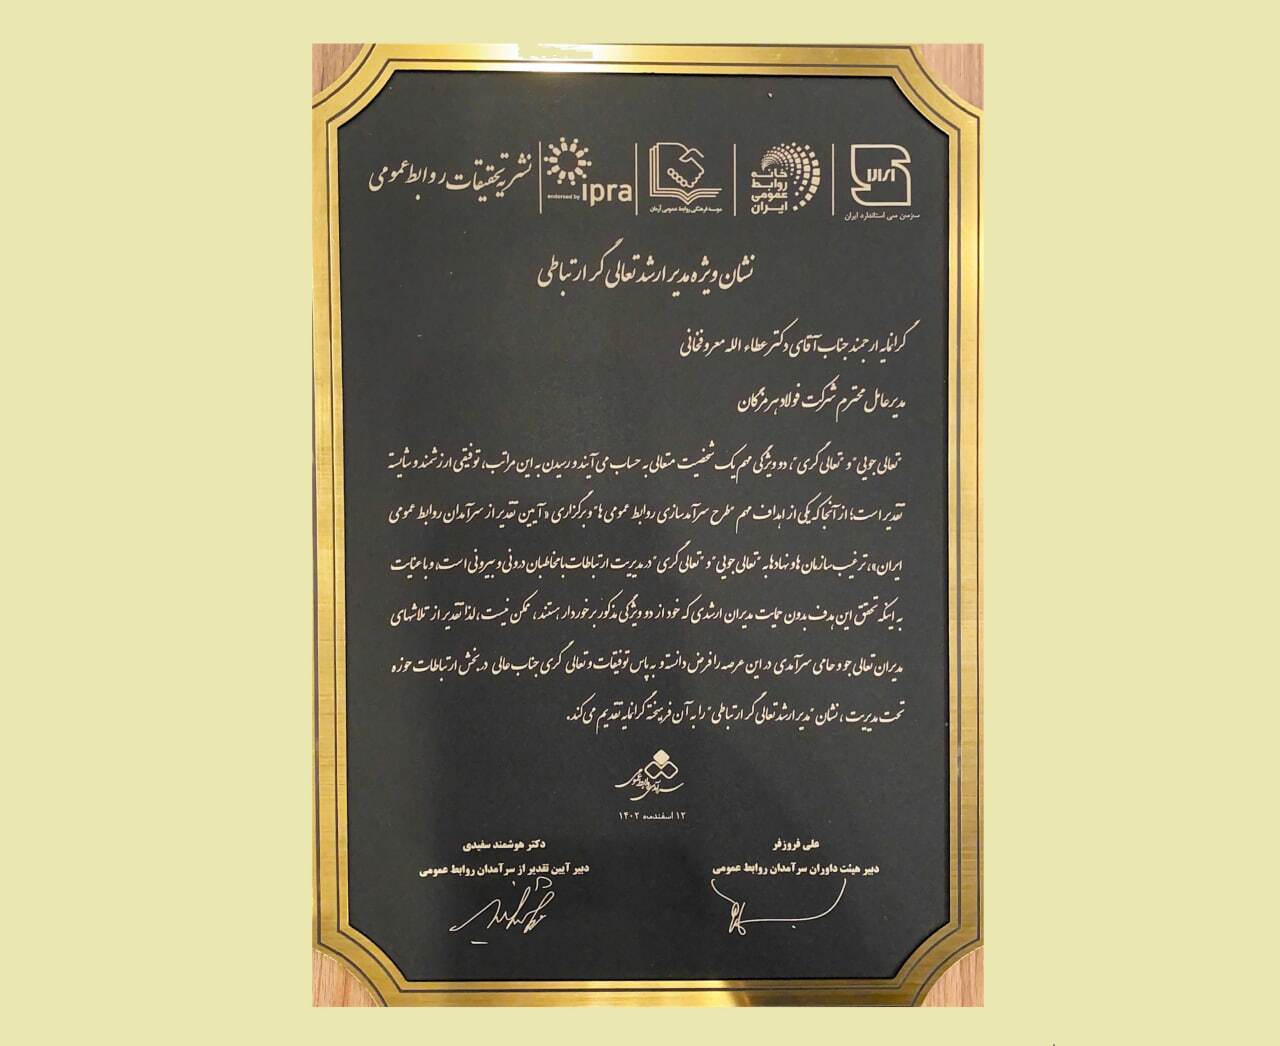 سازمان ملی استاندارد ایران
خانه
روابط
عمومی
ایران
موسسه فرهنگی روابط عمومی آرمان
endorsed by ipra
نشریه تحقیقات روابط عمومی
نشان ویژه مدیر ارشد تعالی گر ارتباطی
گرانمایه ارجمند جناب آقای دکتر عطاء الله معروفخانی
مدیرعامل محترم شرکت فولاد هرمزگان
"تعالی جویی" و "تعالی گری"، دو ویژگی مهم یک شخصیت متعالی به حساب می آیند و رسیدن به این مراتب، توفیقی ارزشمند و شایسته
تقدیر است؛ از آنجا که یکی از اهداف مهم "طرح سرآمدسازی روابط عمومی ها" و برگزاری «آیین تقدیر از سرآمدان روابط عمومی
ایران»، ترغیب سازمان ها و نهادها به "تعالی جویی" و "تعالی گری" در مدیریت ارتباطات با مخاطبان درونی و بیرونی است، و با عنایت
به اینکه تحقق این هدف بدون حمایت مدیران ارشدی که خود از دو ویژگی مذکور برخوردار هستند، ممکن نیست، لذا تقدیر از تلاشهای
مدیران تعالی جو و حامی سرآمدی در این عرصه را فرض دانسته و به پاس توفیقات و تعالی گری جناب عالی در بخش ارتباطات حوزه
تحت مدیریت، نشان "مدیر ارشد تعالی گر ارتباطی" را به آن فرهیخته گرانمایه تقدیم می کند.
سرآمدی روابط عمومی
۱۲ اسفندماه ۱۴۰۲
علی فروزفر
دبیر هیئت داوران سرآمدان روابط عمومی
دکتر هوشمند سفیدی
دبیر آیین تقدیر از سرآمدان روابط عمومی